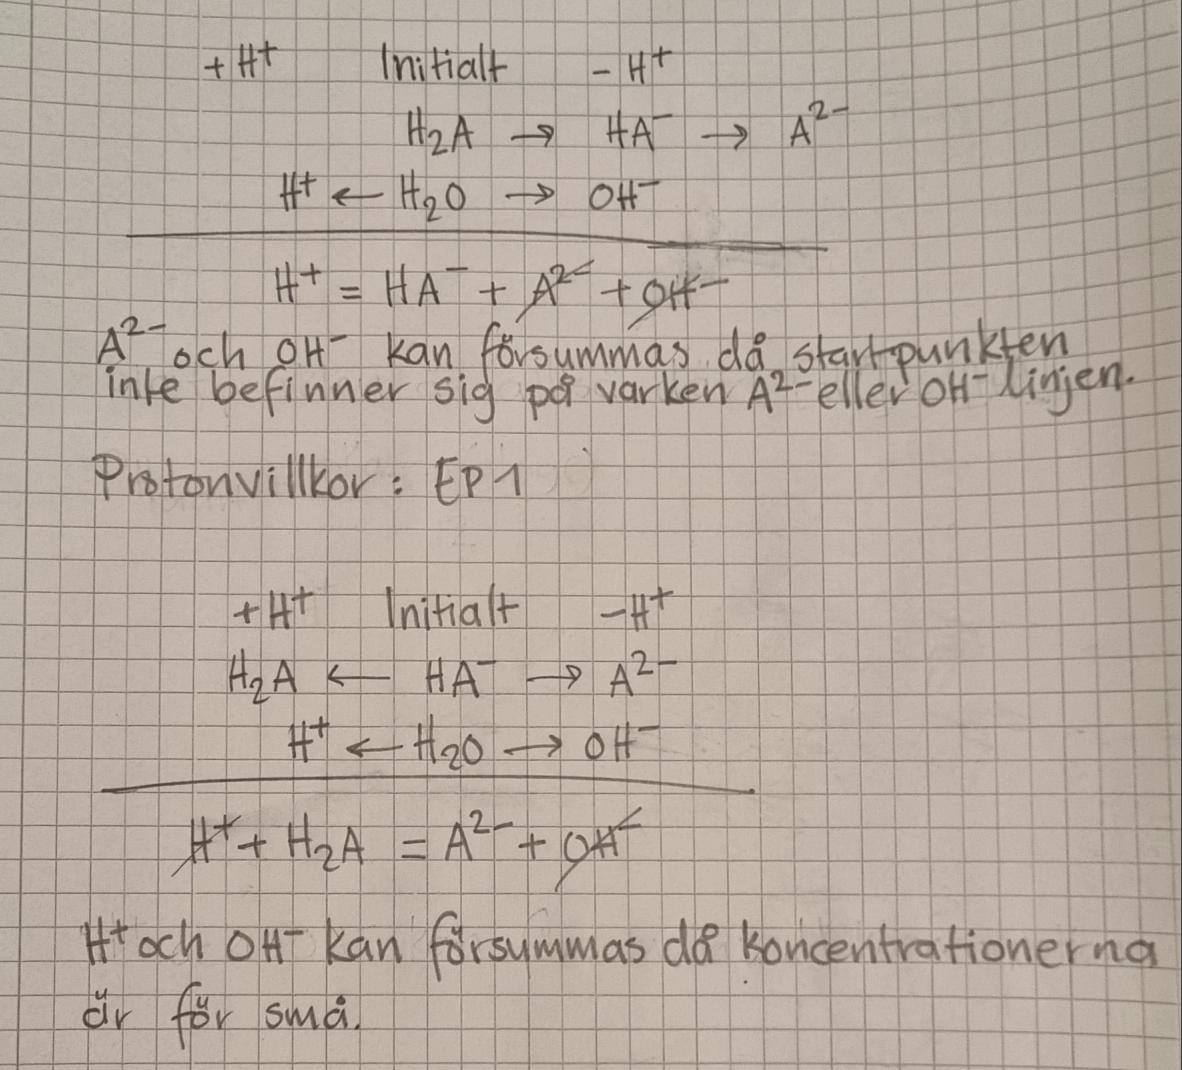 +H⁺ Initialt -H⁺
H₂A → HA⁻ → A²⁻
H⁺ ← H₂O → OH⁻
H⁺ = HA⁻ + A²⁻ + OH⁻
A²⁻ och OH⁻ kan försummas då startpunkten
inte befinner sig på varken A²⁻ eller OH⁻ linjen.
Protonvillkor: EP1
+H⁺ Initialt -H⁺
H₂A ← HA⁻ → A²⁻
H⁺ ← H₂O → OH⁻
H⁺ + H₂A = A²⁻ + OH⁻
H⁺ och OH⁻ kan försummas då koncentrationerna
är för små.